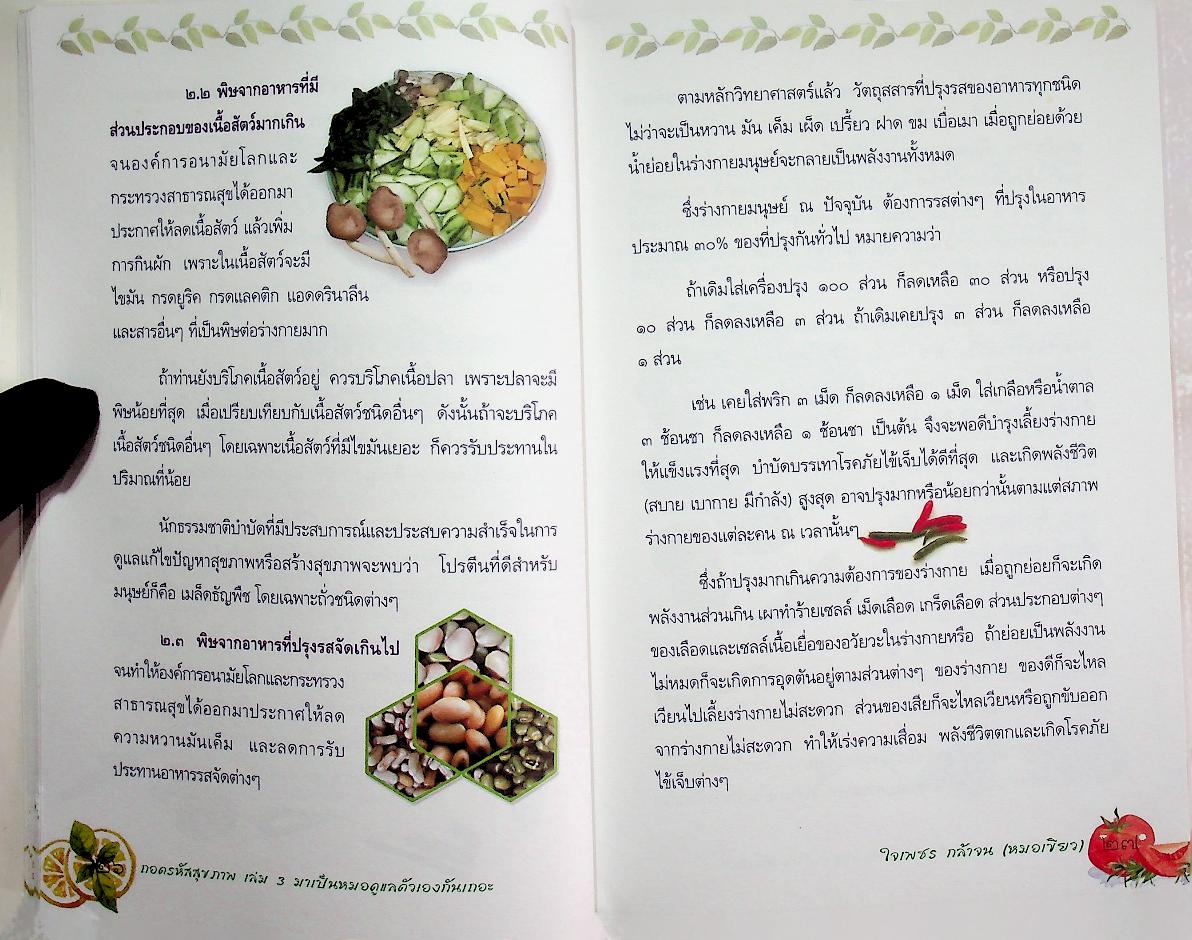 ๒.๒ พิษจากอาหารที่มี
ส่วนประกอบของเนื้อสัตว์มากเกิน
จนองค์การอนามัยโลกและ
กระทรวงสาธารณสุขได้ออกมา
ประกาศให้ลดเนื้อสัตว์ แล้วเพิ่ม
การกินผัก เพราะในเนื้อสัตว์จะมี
ไขมัน กรดยูริค กรดแลคติก แอดดรินาลีน
และสารอื่นๆ ที่เป็นพิษต่อร่างกายมาก
ถ้าท่านยังบริโภคเนื้อสัตว์อยู่ ควรบริโภคเนื้อปลา เพราะปลาจะมี
พิษน้อยที่สุด เมื่อเปรียบเทียบกับเนื้อสัตว์ชนิดอื่นๆ ดังนั้นถ้าจะบริโภค
เนื้อสัตว์ชนิดอื่นๆ โดยเฉพาะเนื้อสัตว์ที่มีไขมันเยอะ ก็ควรรับประทานใน
ปริมาณที่น้อย
นักธรรมชาติบำบัดที่มีประสบการณ์และประสบความสำเร็จในการ
ดูแลแก้ไขปัญหาสุขภาพหรือสร้างสุขภาพจะพบว่า โปรตีนที่ดีสำหรับ
มนุษย์ก็คือ เมล็ดธัญพืช โดยเฉพาะถั่วชนิดต่างๆ
๒.๓ พิษจากอาหารที่ปรุงรสจัดเกินไป
จนทำให้องค์การอนามัยโลกและกระทรวง
สาธารณสุขได้ออกมาประกาศให้ลด
ความหวานมันเค็ม และลดการรับ
ประทานอาหารรสจัดต่างๆ
๒๖ ถอดรหัสสุขภาพ เล่ม 3 มาเป็นหมอดูแลตัวเองกันเถอะ
ตามหลักวิทยาศาสตร์แล้ว วัตถุสสารที่ปรุงรสของอาหารทุกชนิด
ไม่ว่าจะเป็นหวาน มัน เค็ม เผ็ด เปรี้ยว ฝาด ขม เบื่อเมา เมื่อถูกย่อยด้วย
น้ำย่อยในร่างกายมนุษย์จะกลายเป็นพลังงานทั้งหมด
ซึ่งร่างกายมนุษย์ ณ ปัจจุบัน ต้องการรสต่างๆ ที่ปรุงในอาหาร
ประมาณ ๓๐% ของที่ปรุงกันทั่วไป หมายความว่า
ถ้าเดิมใส่เครื่องปรุง ๑๐๐ ส่วน ก็ลดเหลือ ๓๐ ส่วน หรือปรุง
๑๐ ส่วน ก็ลดลงเหลือ ๓ ส่วน ถ้าเดิมเคยปรุง ๓ ส่วน ก็ลดลงเหลือ
๑ ส่วน
เช่น เคยใส่พริก ๓ เม็ด ก็ลดลงเหลือ ๑ เม็ด ใส่เกลือหรือน้ำตาล
๓ ช้อนชา ก็ลดลงเหลือ ๑ ช้อนชา เป็นต้น จึงจะพอดีบำรุงเลี้ยงร่างกาย
ให้แข็งแรงที่สุด บำบัดบรรเทาโรคภัยไข้เจ็บได้ดีที่สุด และเกิดพลังชีวิต
(สบาย เบากาย มีกำลัง) สูงสุด อาจปรุงมากหรือน้อยกว่านั้นตามแต่สภาพ
ร่างกายของแต่ละคน ณ เวลานั้นๆ
ซึ่งถ้าปรุงมากเกินความต้องการของร่างกาย เมื่อถูกย่อยก็จะเกิด
พลังงานส่วนเกิน เผาทำร้ายเซลล์ เม็ดเลือด เกร็ดเลือด ส่วนประกอบต่างๆ
ของเลือดและเซลล์เนื้อเยื่อของอวัยวะในร่างกายหรือ ถ้าย่อยเป็นพลังงาน
ไม่หมดก็จะเกิดการอุดตันอยู่ตามส่วนต่างๆ ของร่างกาย ของดีก็จะไหล
เวียนไปเลี้ยงร่างกายไม่สะดวก ส่วนของเสียก็จะไหลเวียนหรือถูกขับออก
จากร่างกายไม่สะดวก ทำให้เร่งความเสื่อม พลังชีวิตตกและเกิดโรคภัย
ไข้เจ็บต่างๆ
ใจเพชร กล้าจน (หมอเขียว) ๒๗